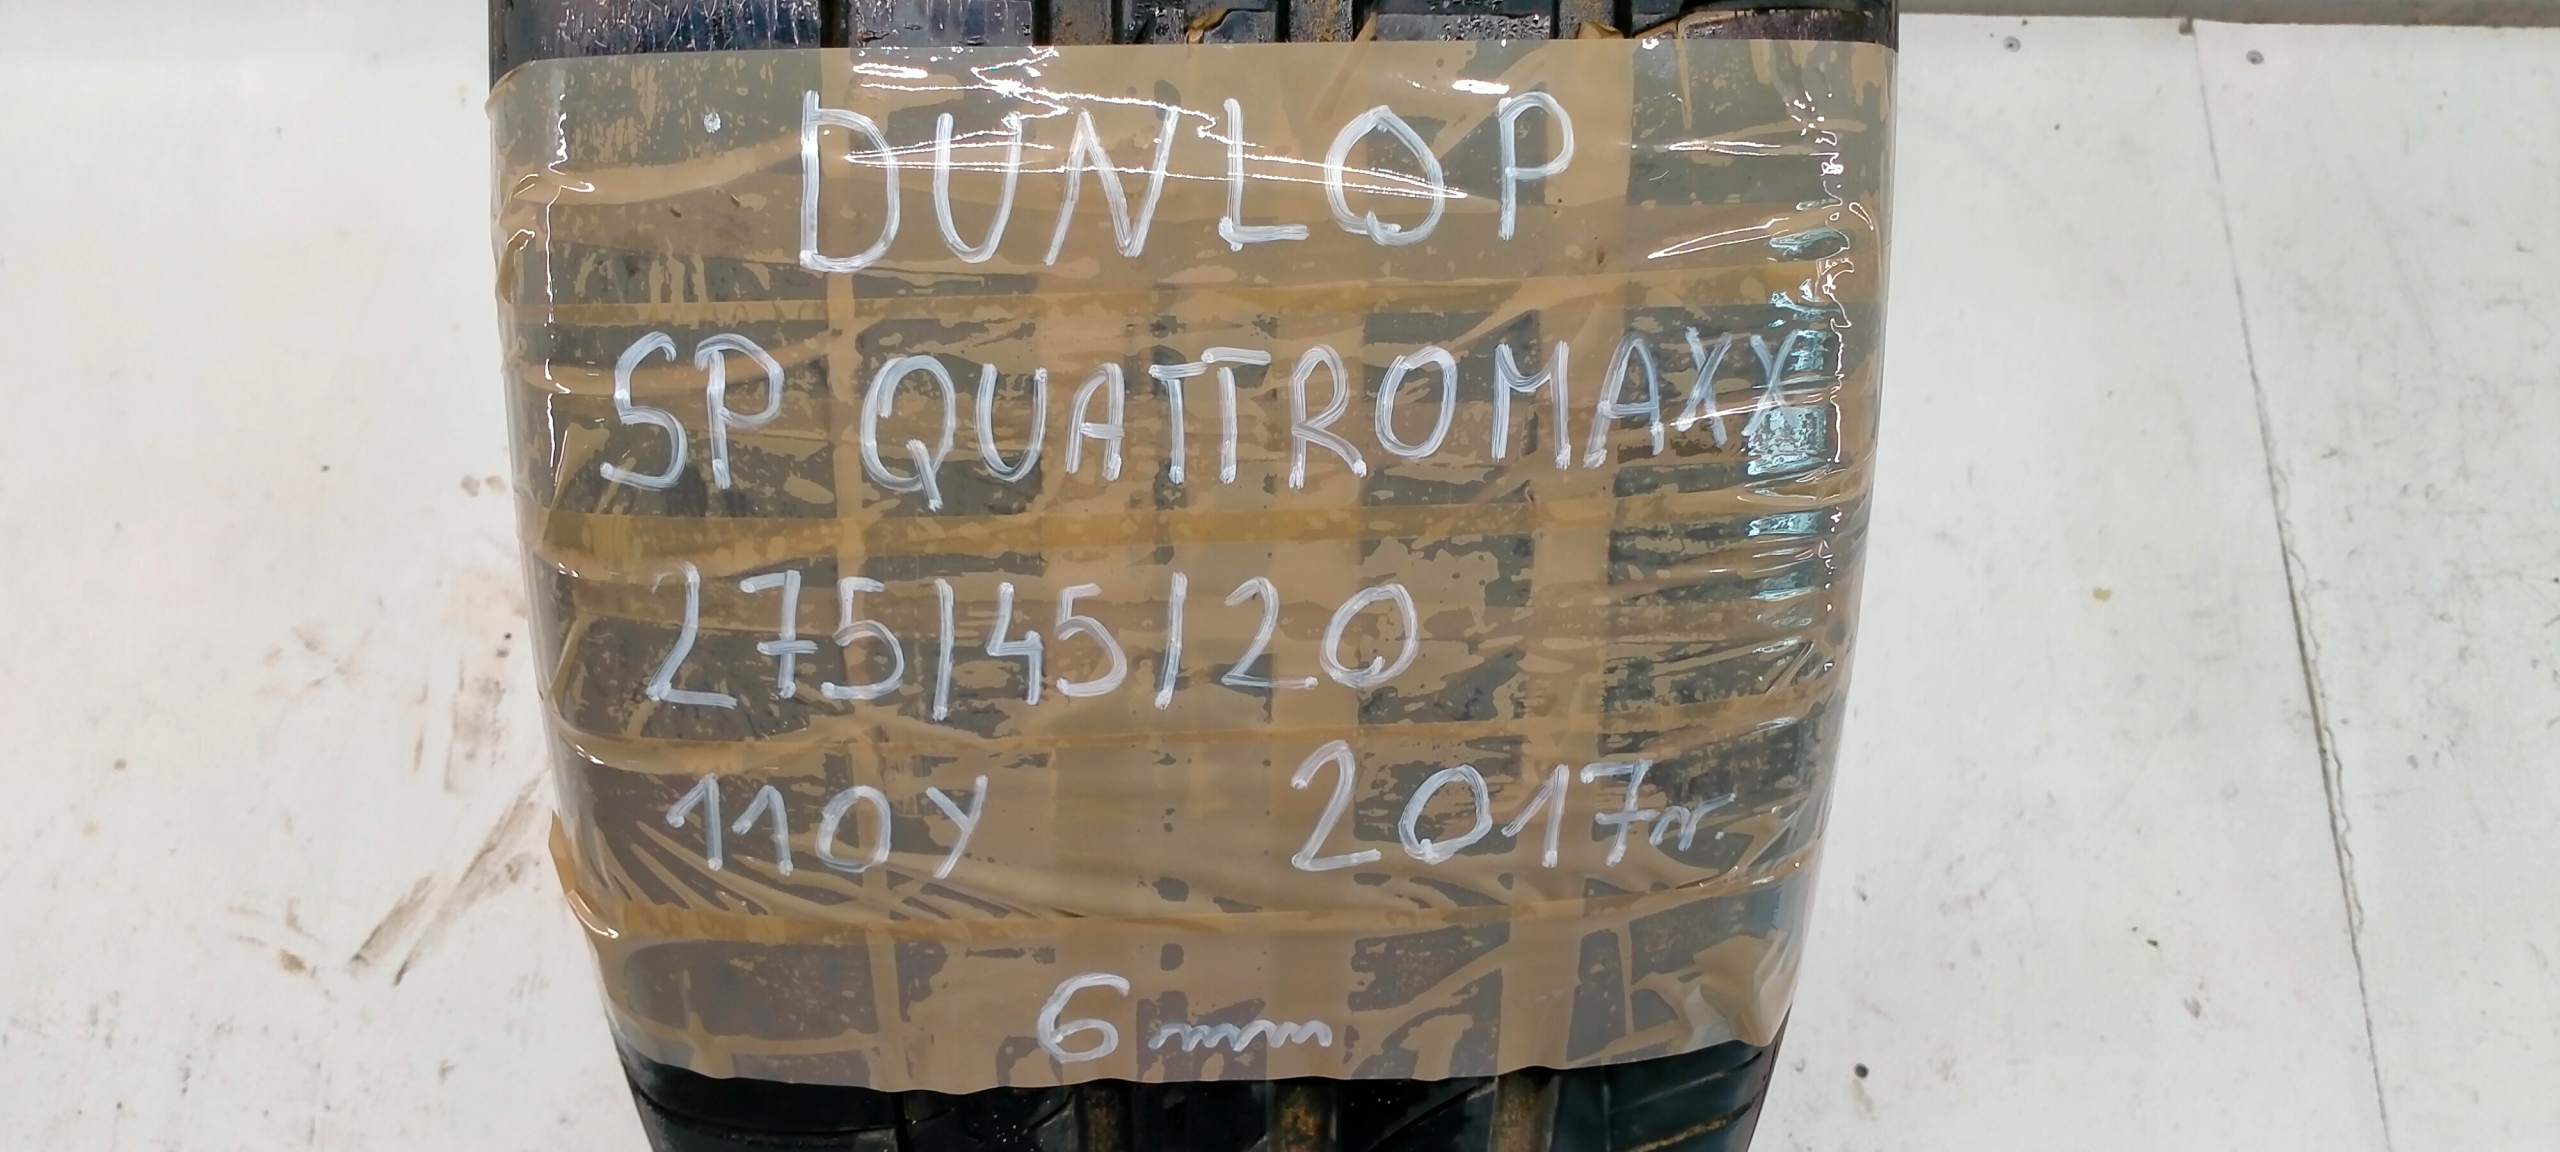 DUNLOP
SP QUATTROMAXX
275/45/20
110Y 2017r.
6mm